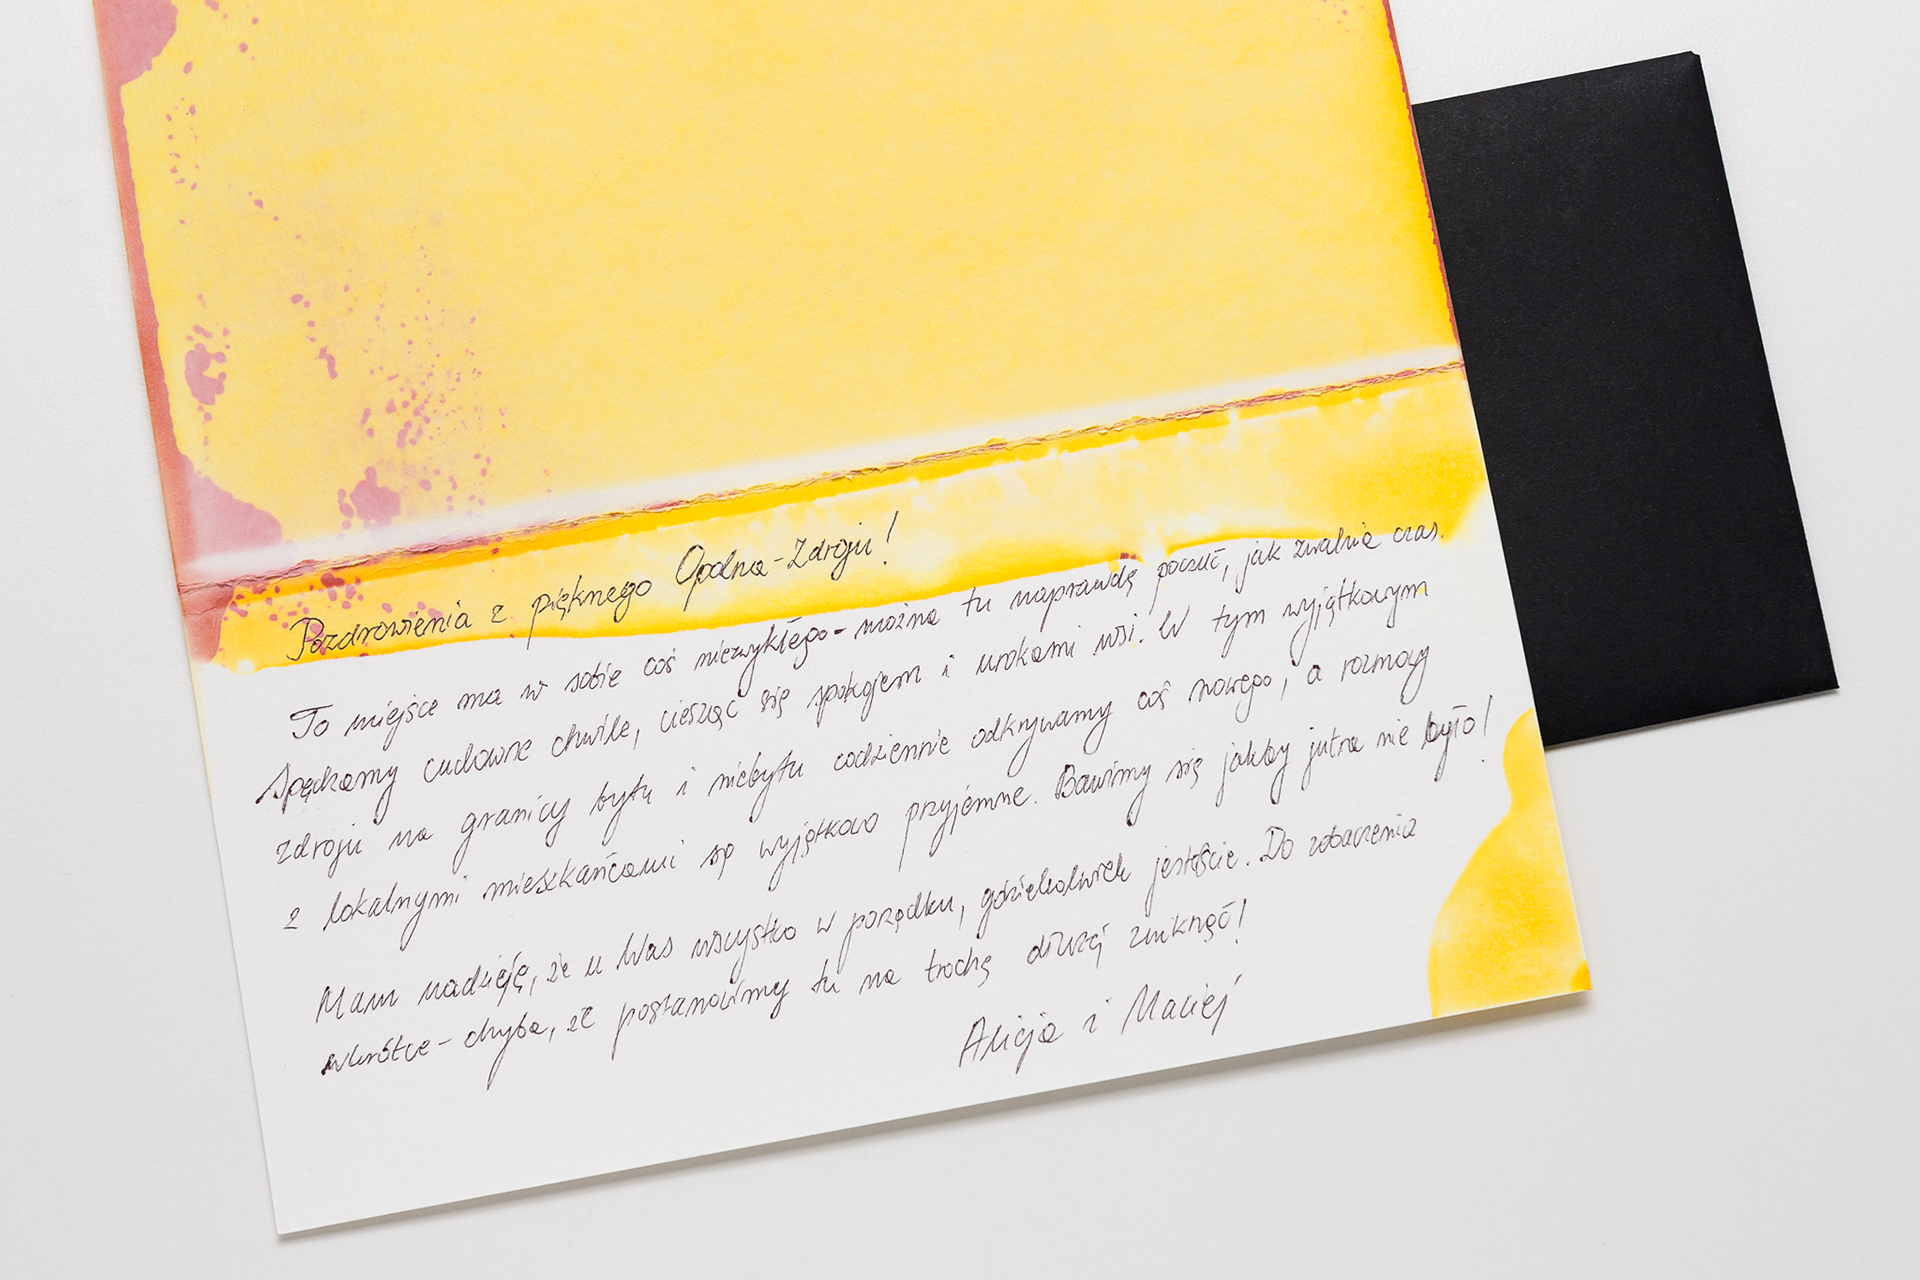 Pozdrowienia z pięknego Opolna-Zdroju!
To miejsce ma w sobie coś niezwykłego - można tu naprawdę poczuć, jak zwalnia czas.
Spędzamy cudowne chwile, ciesząc się spokojem i urokami wsi. W tym wyjątkowym
zdroju na granicy bytu i niebytu codziennie odkrywamy coś nowego, a rozmowy
z lokalnymi mieszkańcami są wyjątkowo przyjemne. Bawimy się jakby jutra nie było!
Mam nadzieję, że u Was wszystko w porządku, gdziekolwiek jesteście. Do zobaczenia
wkrótce - chyba, że postanowimy tu na trochę dłużej zniknąć!
Alicja i Maciej